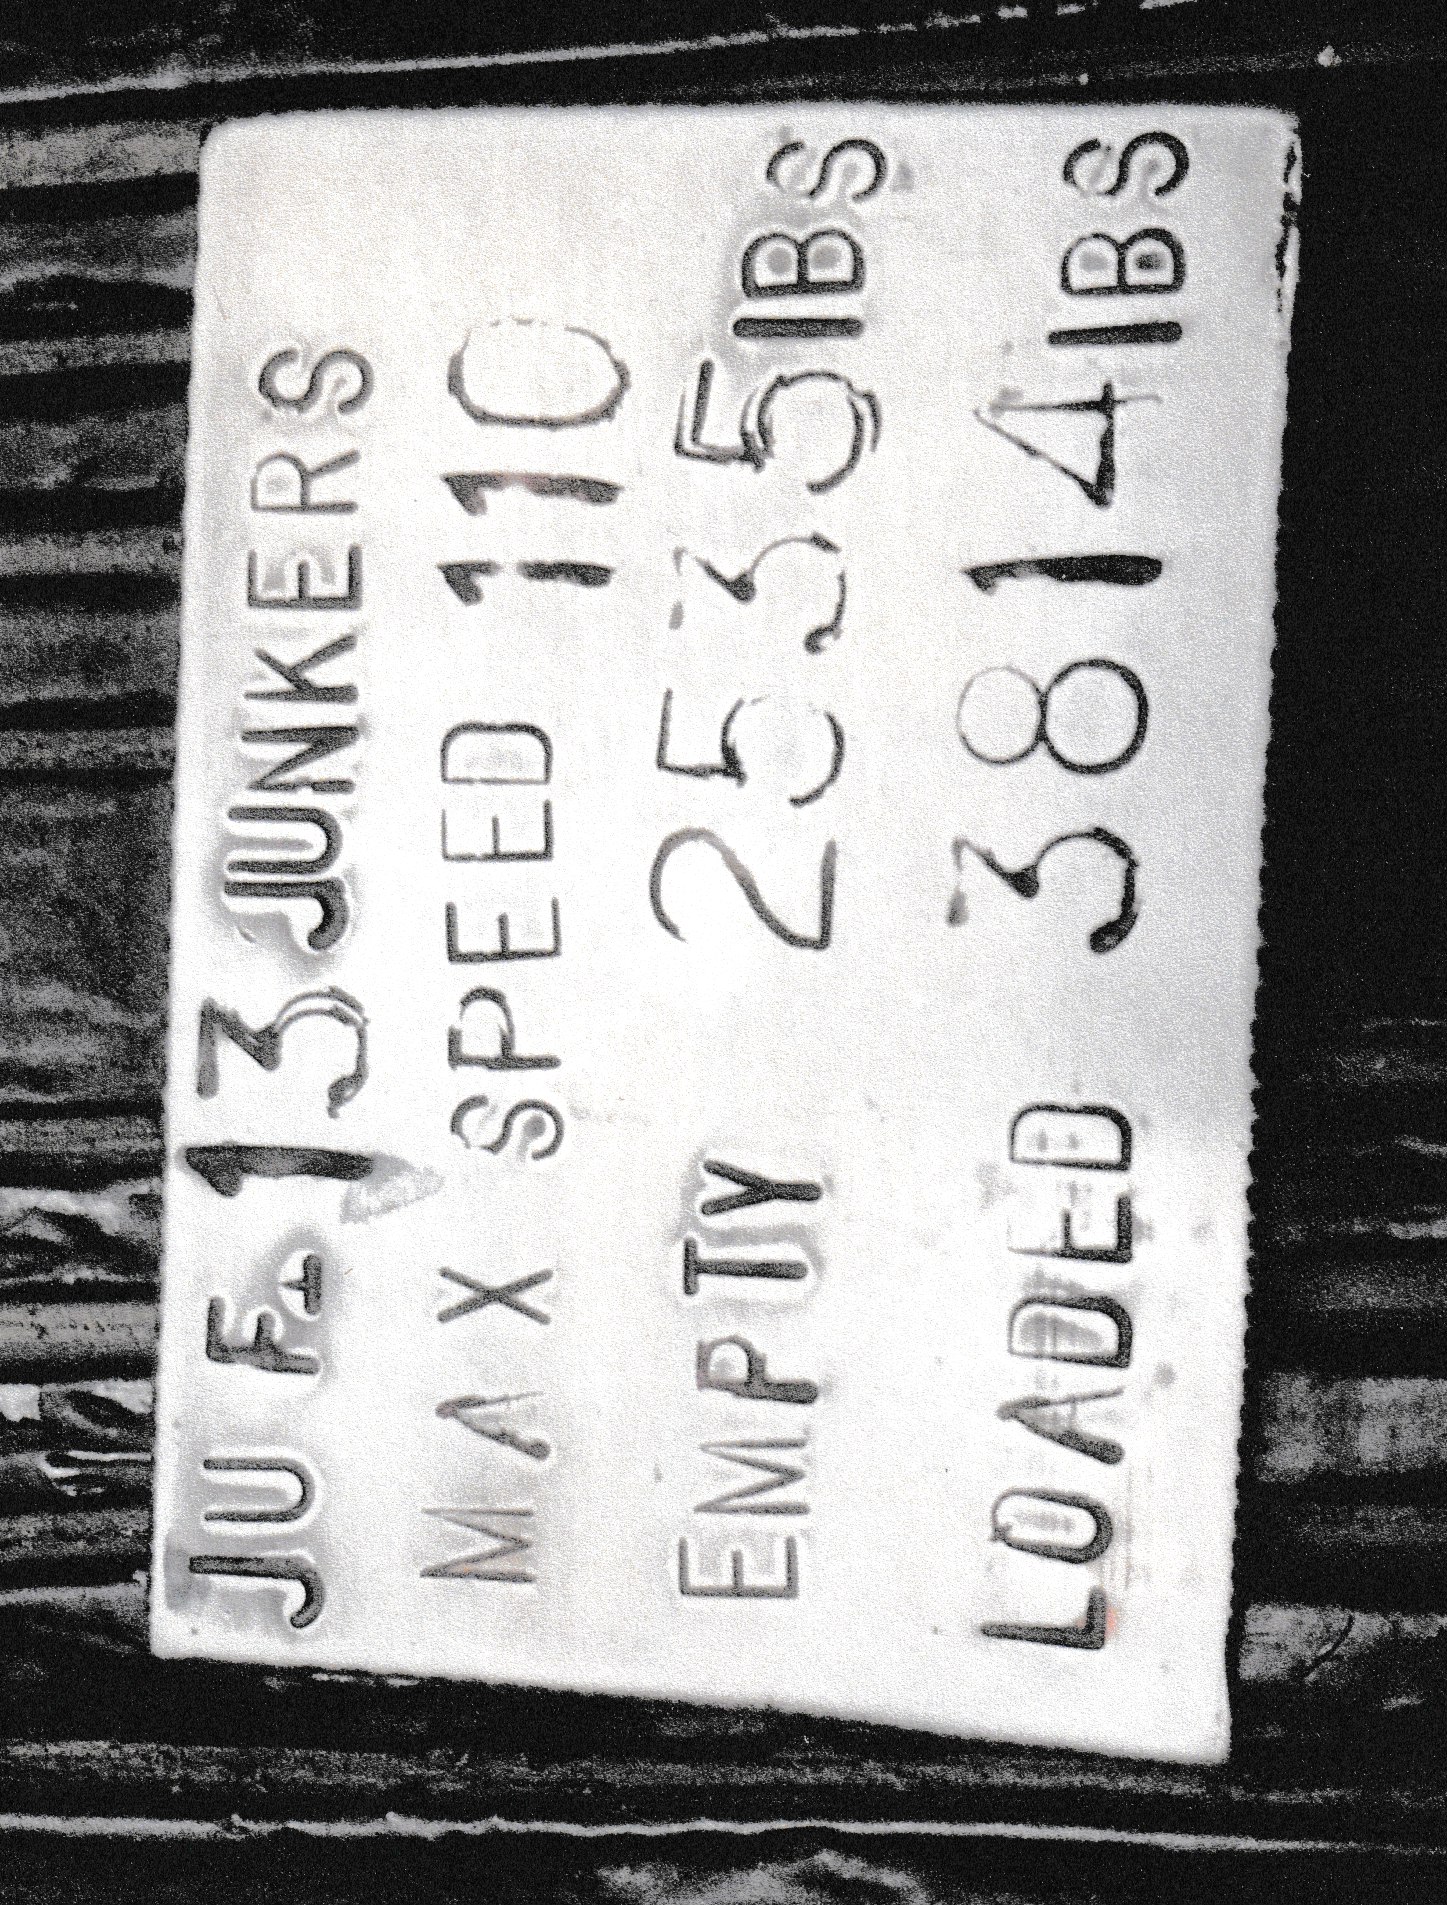 JU F 13 JUNKERS
MAX SPEED 110
EMPTY 2535 lBS
LOADED 3814 lBS